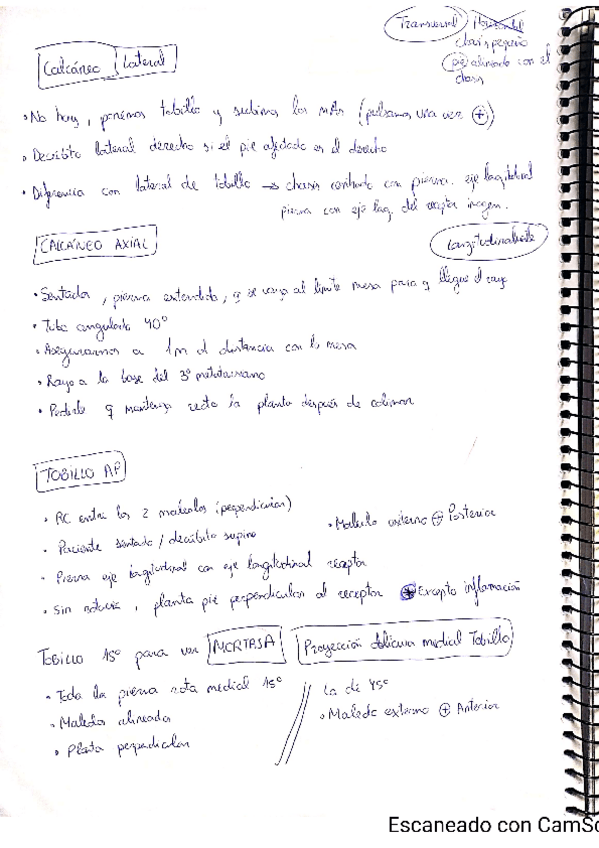 Transversal Horizontal
chasis pequeño
pie alineado con el
chasis
Calcáneo lateral
• No hay, ponemos tobillo y subimos los mAs (pulsamos una vez +)
• Decúbito lateral derecho si el pie afectado es el derecho
• Diferencia con lateral de tobillo → chasis centrado con pierna. eje longitudinal
pierna con eje long. del receptor imagen.
CALCÁNEO AXIAL
Longitudinalmente
• Sentado, pierna extendida, q se vaya al límite mesa para q llegue el rayo
• Tubo angulado 40°
• Asegurarnos a 1m d distancia con la mesa
• Rayo a la base del 3º metatarsiano
• Pedirle q mantenga recta la planta después de colimar
TOBILLO AP
• RC entre los 2 maleolos (perpendicular)
• Maleolo externo + Posterior
• Paciente sentado / decúbito supino
• Pierna eje longitudinal con eje longitudinal receptor
• Sin rotación, planta pie perpendicular al receptor Excepto inflamación
TOBILLO 15º para ver MORTAJA Proyección oblicua medial Tobillo
• Toda la pierna rota medial 15º
La de 45º
• Maleolos alineados
• Maleolo externo + Anterior
• Planta perpendicular
Escaneado con CamSc